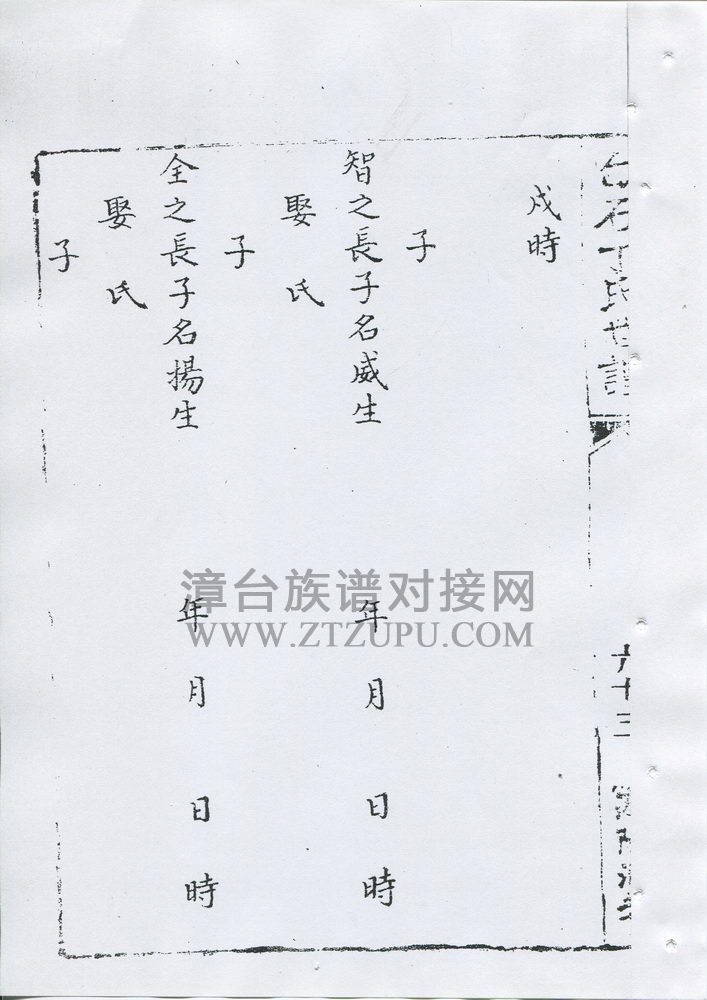 戌時
子
智之長子名威生 年 月 日 時
娶 氏
子
全之長子名揚生 年 月 日 時
娶 氏
子
石丁氏世譜
六十三
漳台族谱对接网
WWW.ZTZUPU.COM